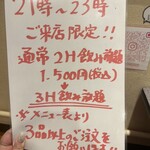 21時～23時
ご来店限定!!
通常2H飲み放題
1,500円(税込)
3H飲み放題
※メニュー表より
3品以上のご注文を
お願いします!!